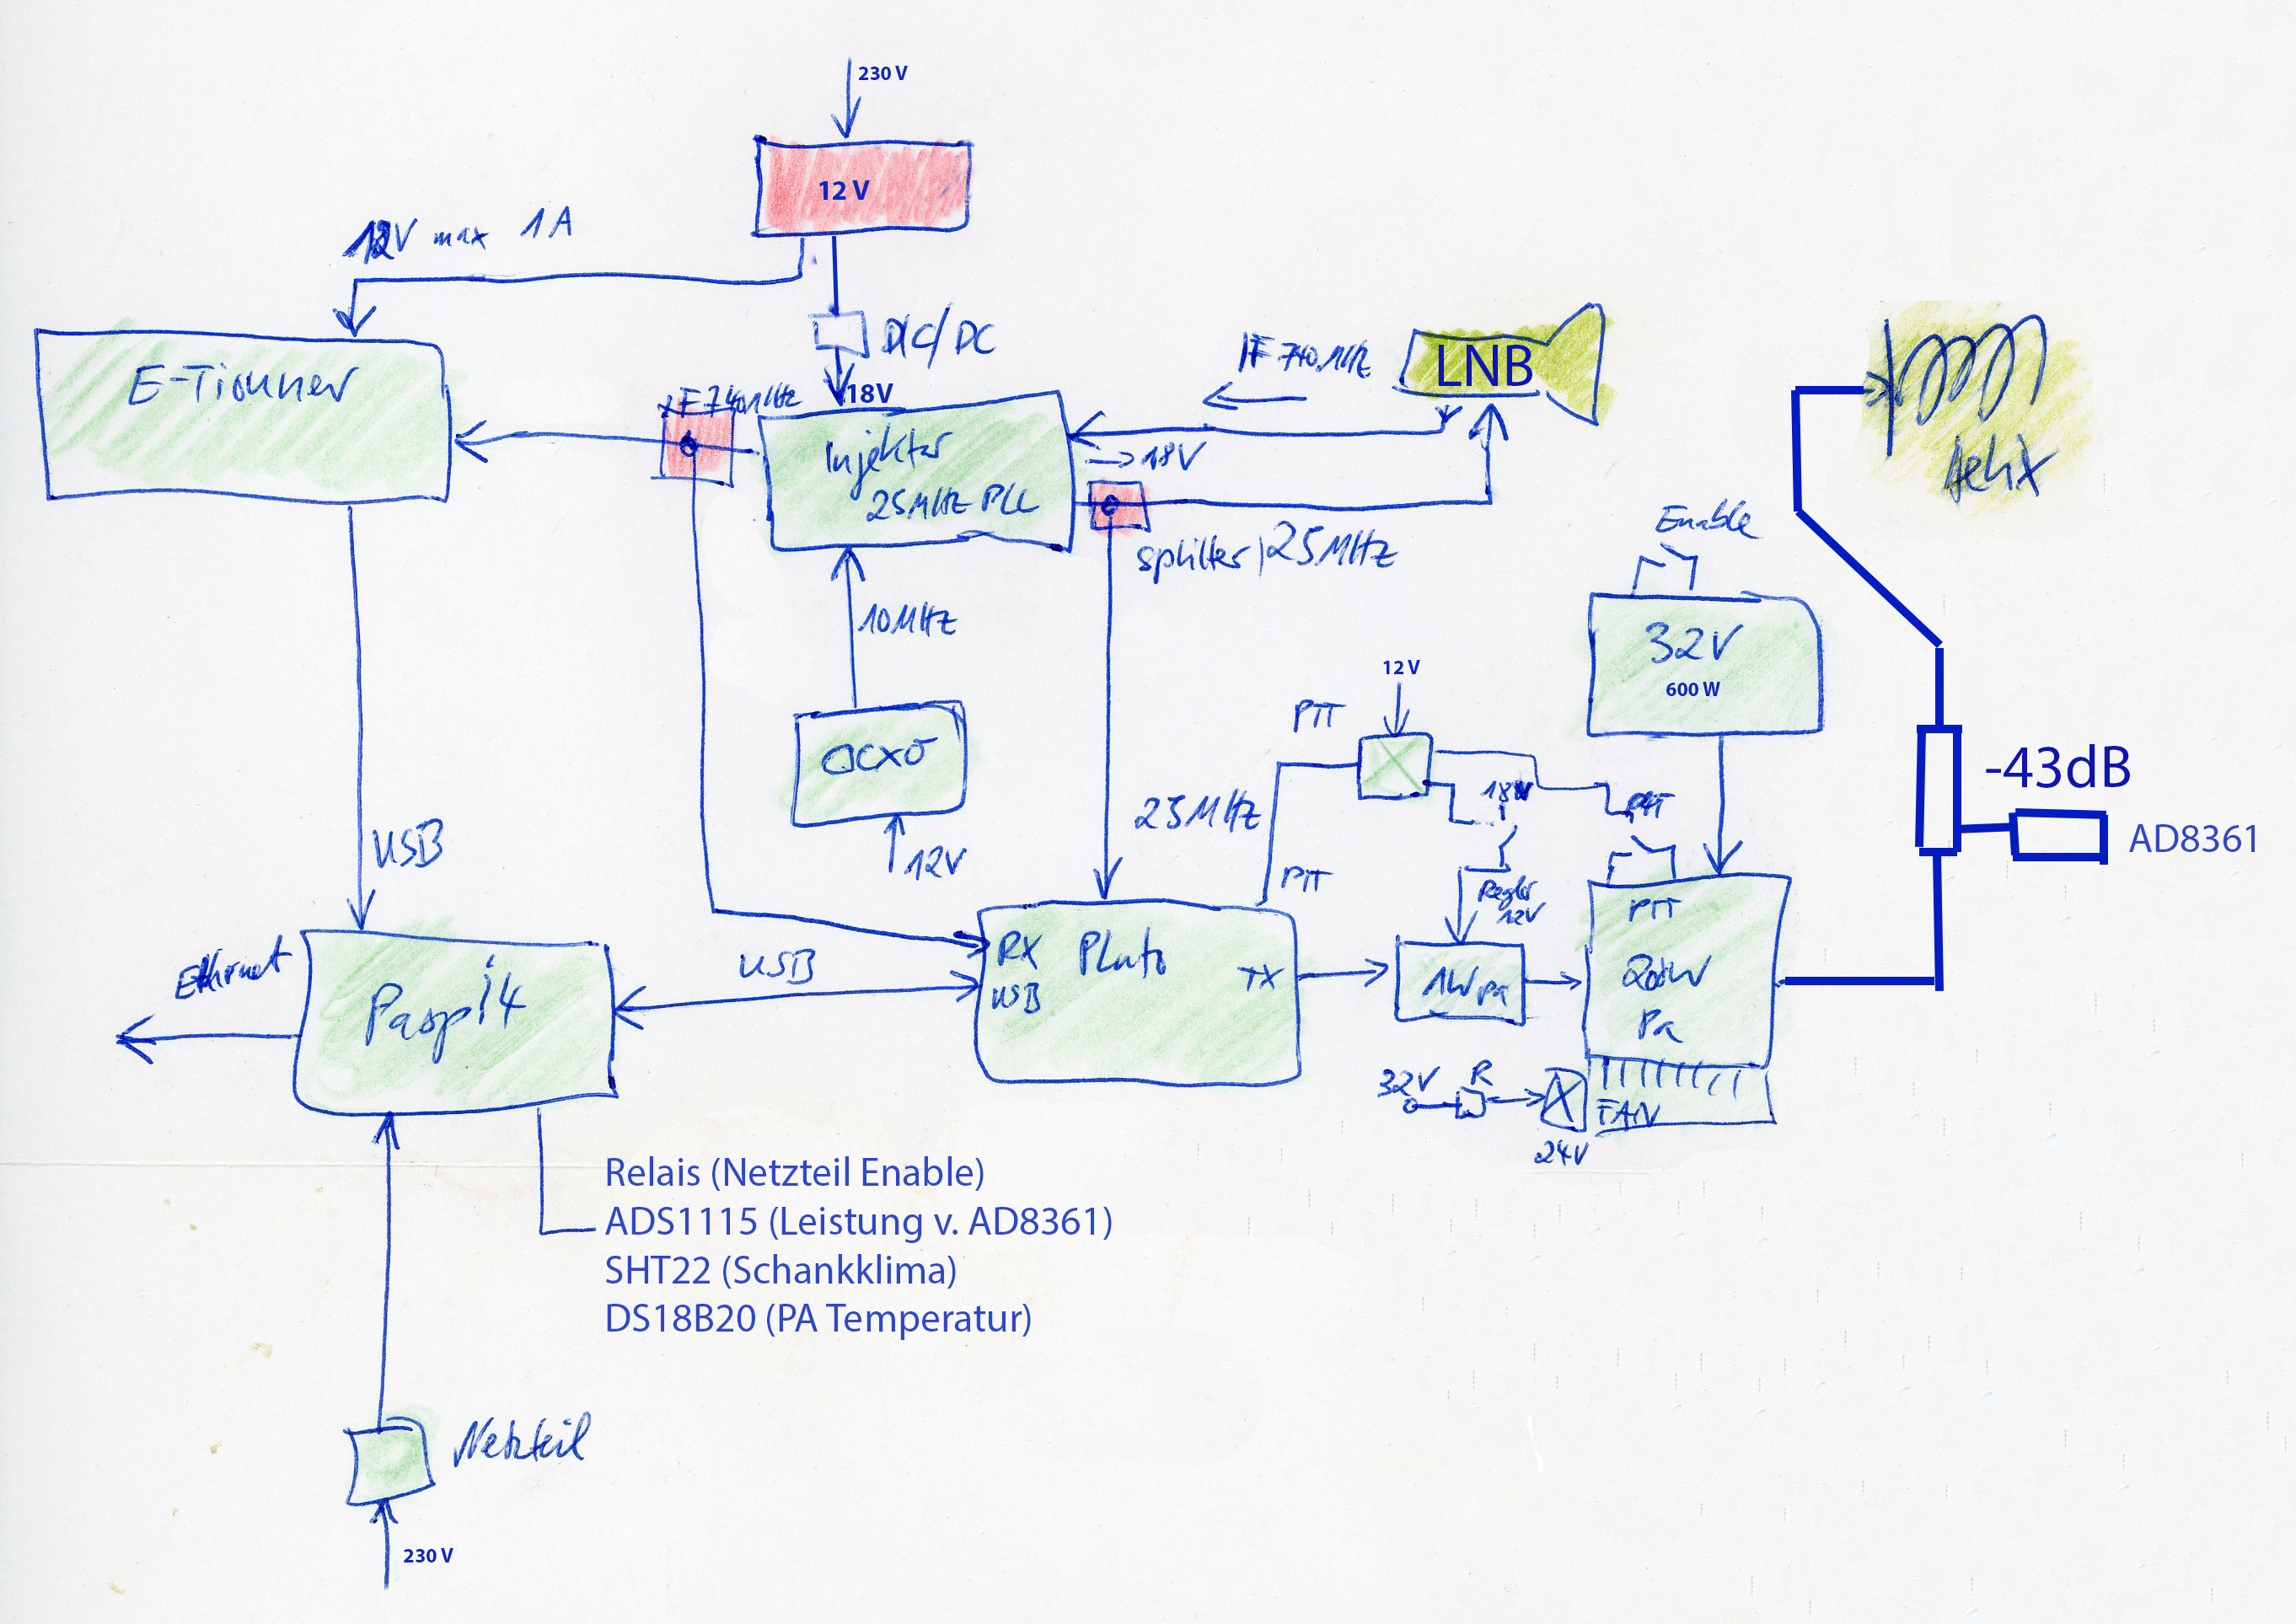 230 V
12 V
12V max 1A
DC/DC
18V
E-Tiouner
IF 740MHz
IF 740MHz
LNB
Injektor
25MHz PLL
→18V
splitter 25MHz
Helix
Enable
32V
600 W
10MHz
OCXO
12V
12 V
PTT
18V
PTT
-43dB
AD8361
25MHz
PTT
Regler
12V
USB
Ethernet
Raspi4
USB
RX
USB
Pluto
TX
1W Pa
PTT
200W
Pa
32V
R
FAN
24V
Relais (Netzteil Enable)
ADS1115 (Leistung v. AD8361)
SHT22 (Schankklima)
DS18B20 (PA Temperatur)
Netzteil
230 V